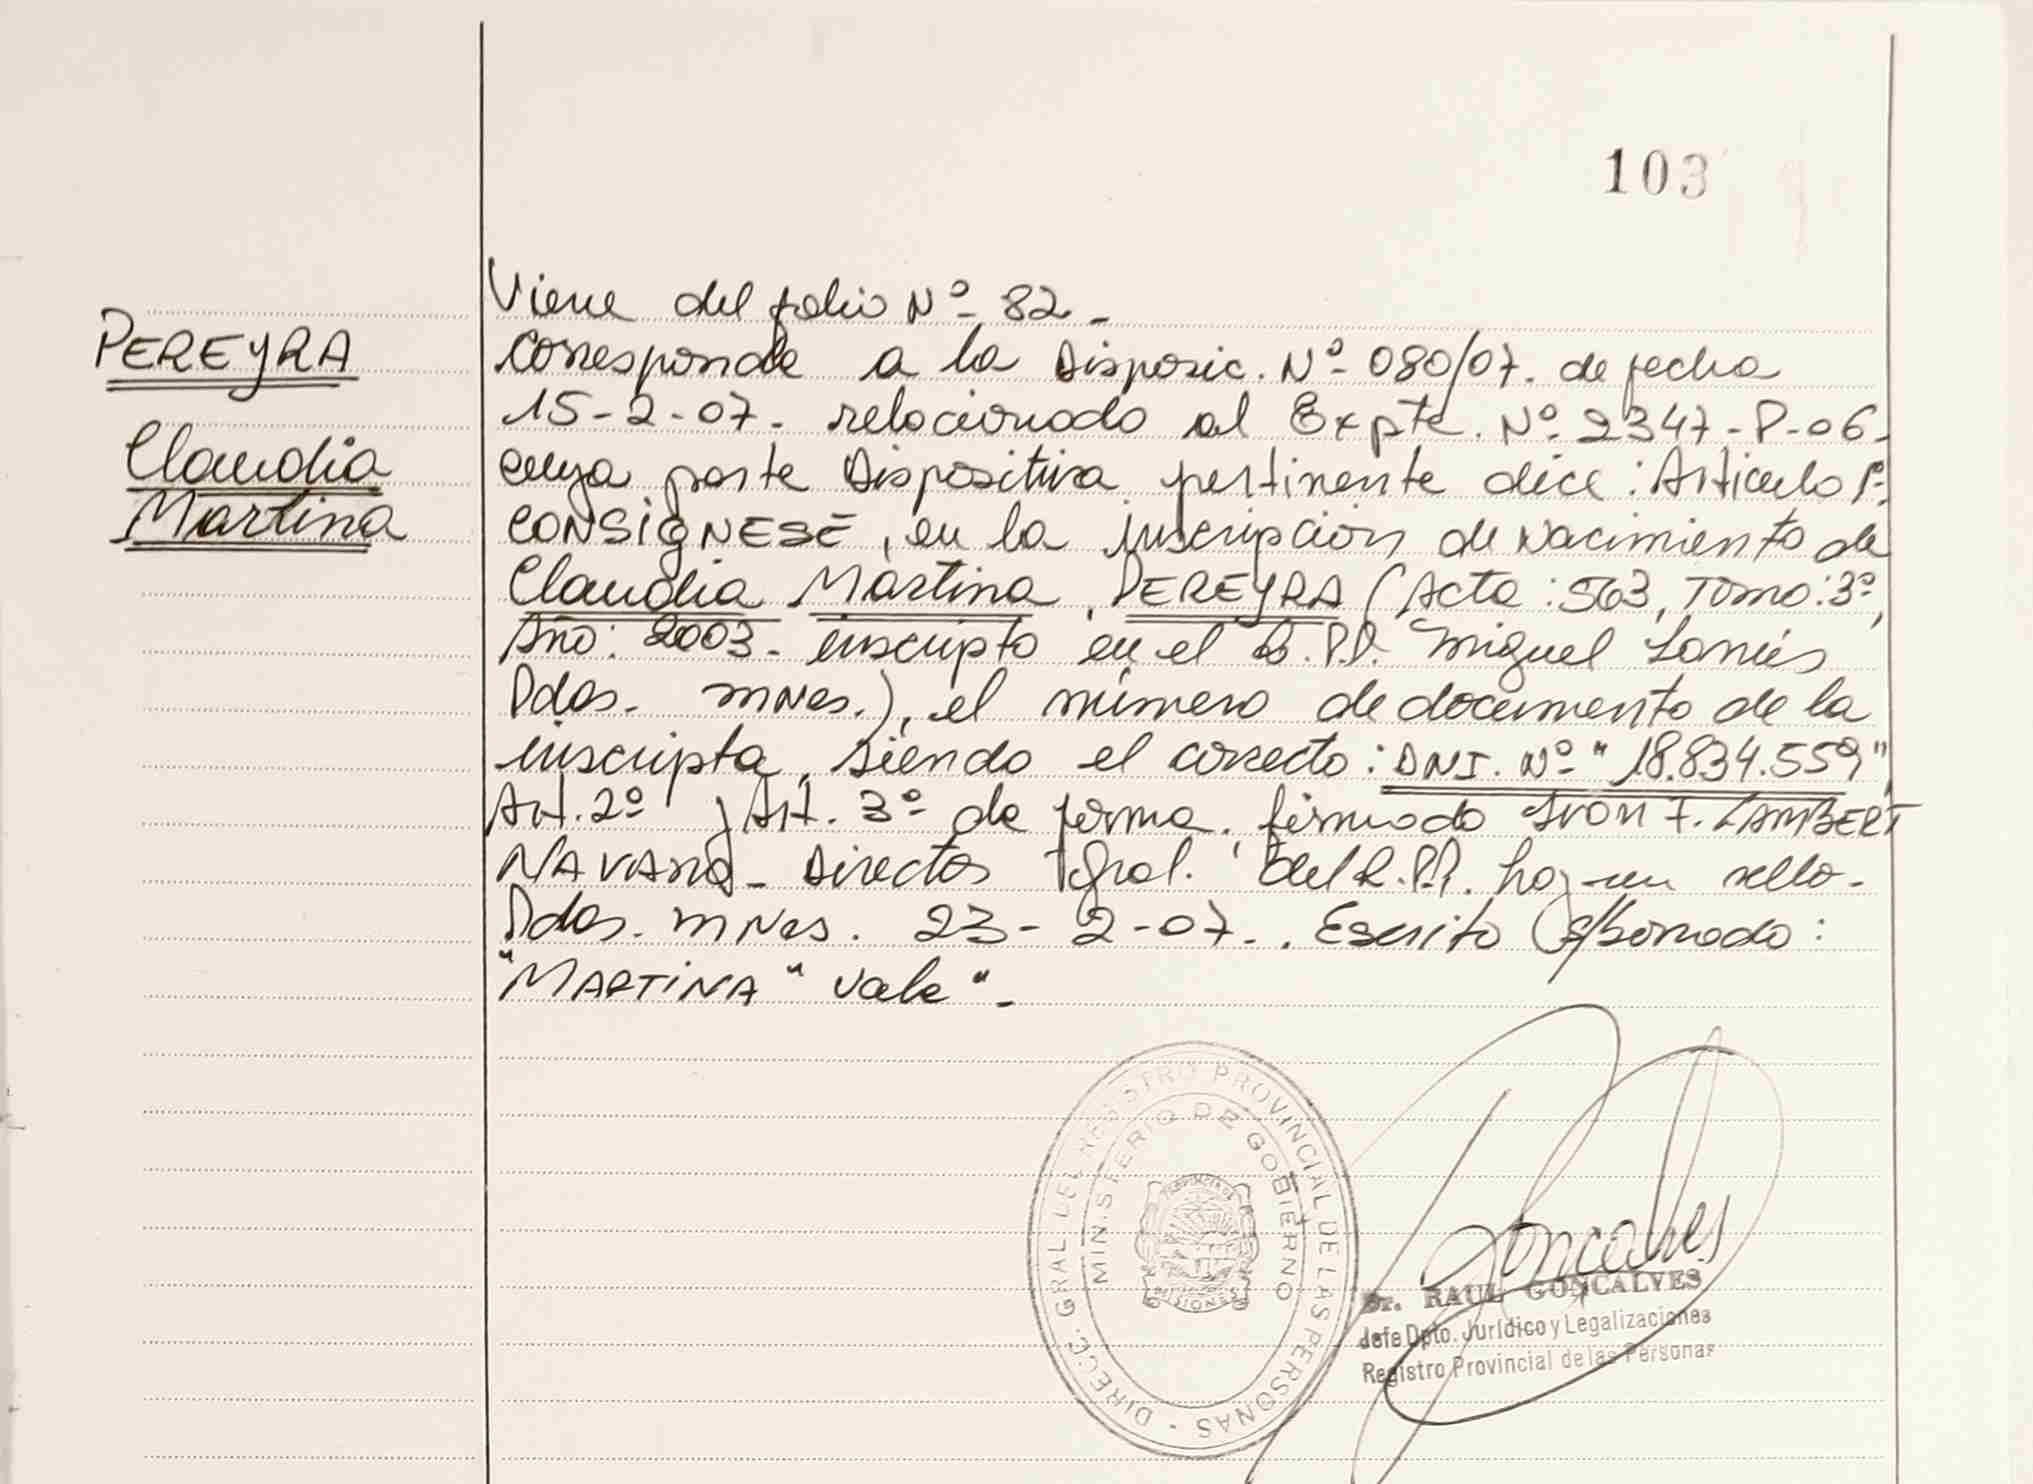 103
PEREYRA
Claudia
Martina
Viene del folio Nº 82 -
Corresponde a la Disposic. Nº 080/07. de fecha
15-2-07. relacionado al Expte. Nº 2347-P-06-
cuya parte Dispositiva pertinente dice: Articulo 1º:
CONSIGNESE, en la inscripción de Nacimiento de
Claudia Martina PEREYRA (Acta: 563, Tomo: 3º,
Año: 2003 - inscripto en el R.P.P. Miguel Lanús
Pdas. MNes.), el número de documento de la
inscripta, siendo el correcto: DNI. Nº "18.834.559"
Art. 2º y Art. 3º de forma. firmado Ivon F. LAMBERT
NAVARRO - Director Gral. del R.P.P. hay un sello -
Pdas. MNes. 23-2-07-. Escrito s/borrado:
"MARTINA" vale" -
DIRECC. GRAL DEL REGISTRO PROVINCIAL DE LAS PERSONAS -
MINISTERIO DE GOBIERNO
MISIONES
Goncalves
Dr. RAUL GONCALVES
Jefe Dpto. Jurídico y Legalizaciones
Registro Provincial de las Personas